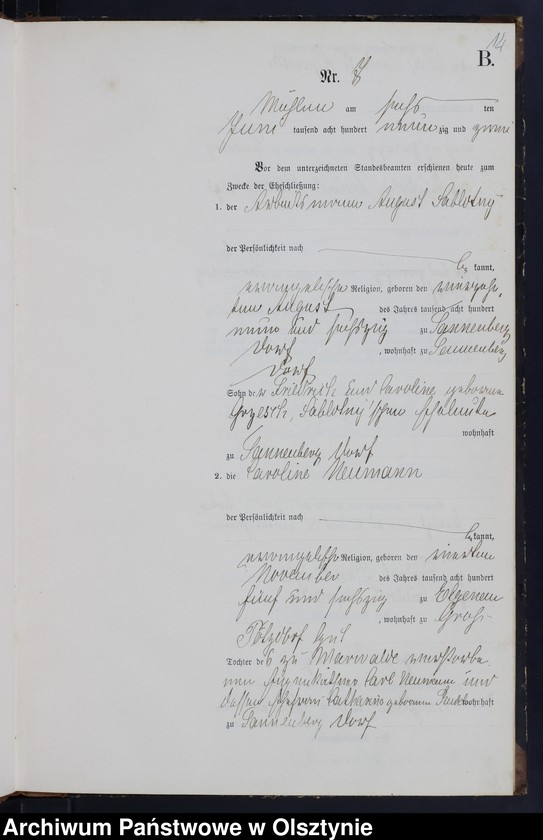 14
B.
Nr. 8
Mühlen am sechs ten
Juni tausend acht hundert neun zig und zwei
Vor dem unterzeichneten Standesbeamten erschienen heute zum
Zwecke der Eheschließung:
1. der Arbeitsmann August Sablotny
der Persönlichkeit nach
be kannt,
evangelische Religion, geboren den vierzehn
ten August des Jahres tausend acht hundert
neun und sechszig zu Tannenberg
Dorf, wohnhaft zu Tannenberg
Dorf
Sohn der Friedrich und Caroline geborene
Sablotny'schen Eheleute
wohnhaft
zu Tannenberg Dorf
2. die Caroline Neumann
der Persönlichkeit nach
be kannt,
evangelische Religion, geboren den vierten
November des Jahres tausend acht hundert
fünf und sechszig zu Elgenau
, wohnhaft zu Groß-
Gut
Tochter des zu Marwalde verstorbe
nen Eigenkäthner Carl Neumann und
dessen Ehefrau geborenen wohnhaft
zu Tannenberg Dorf
Archiwum Państwowe w Olsztynie